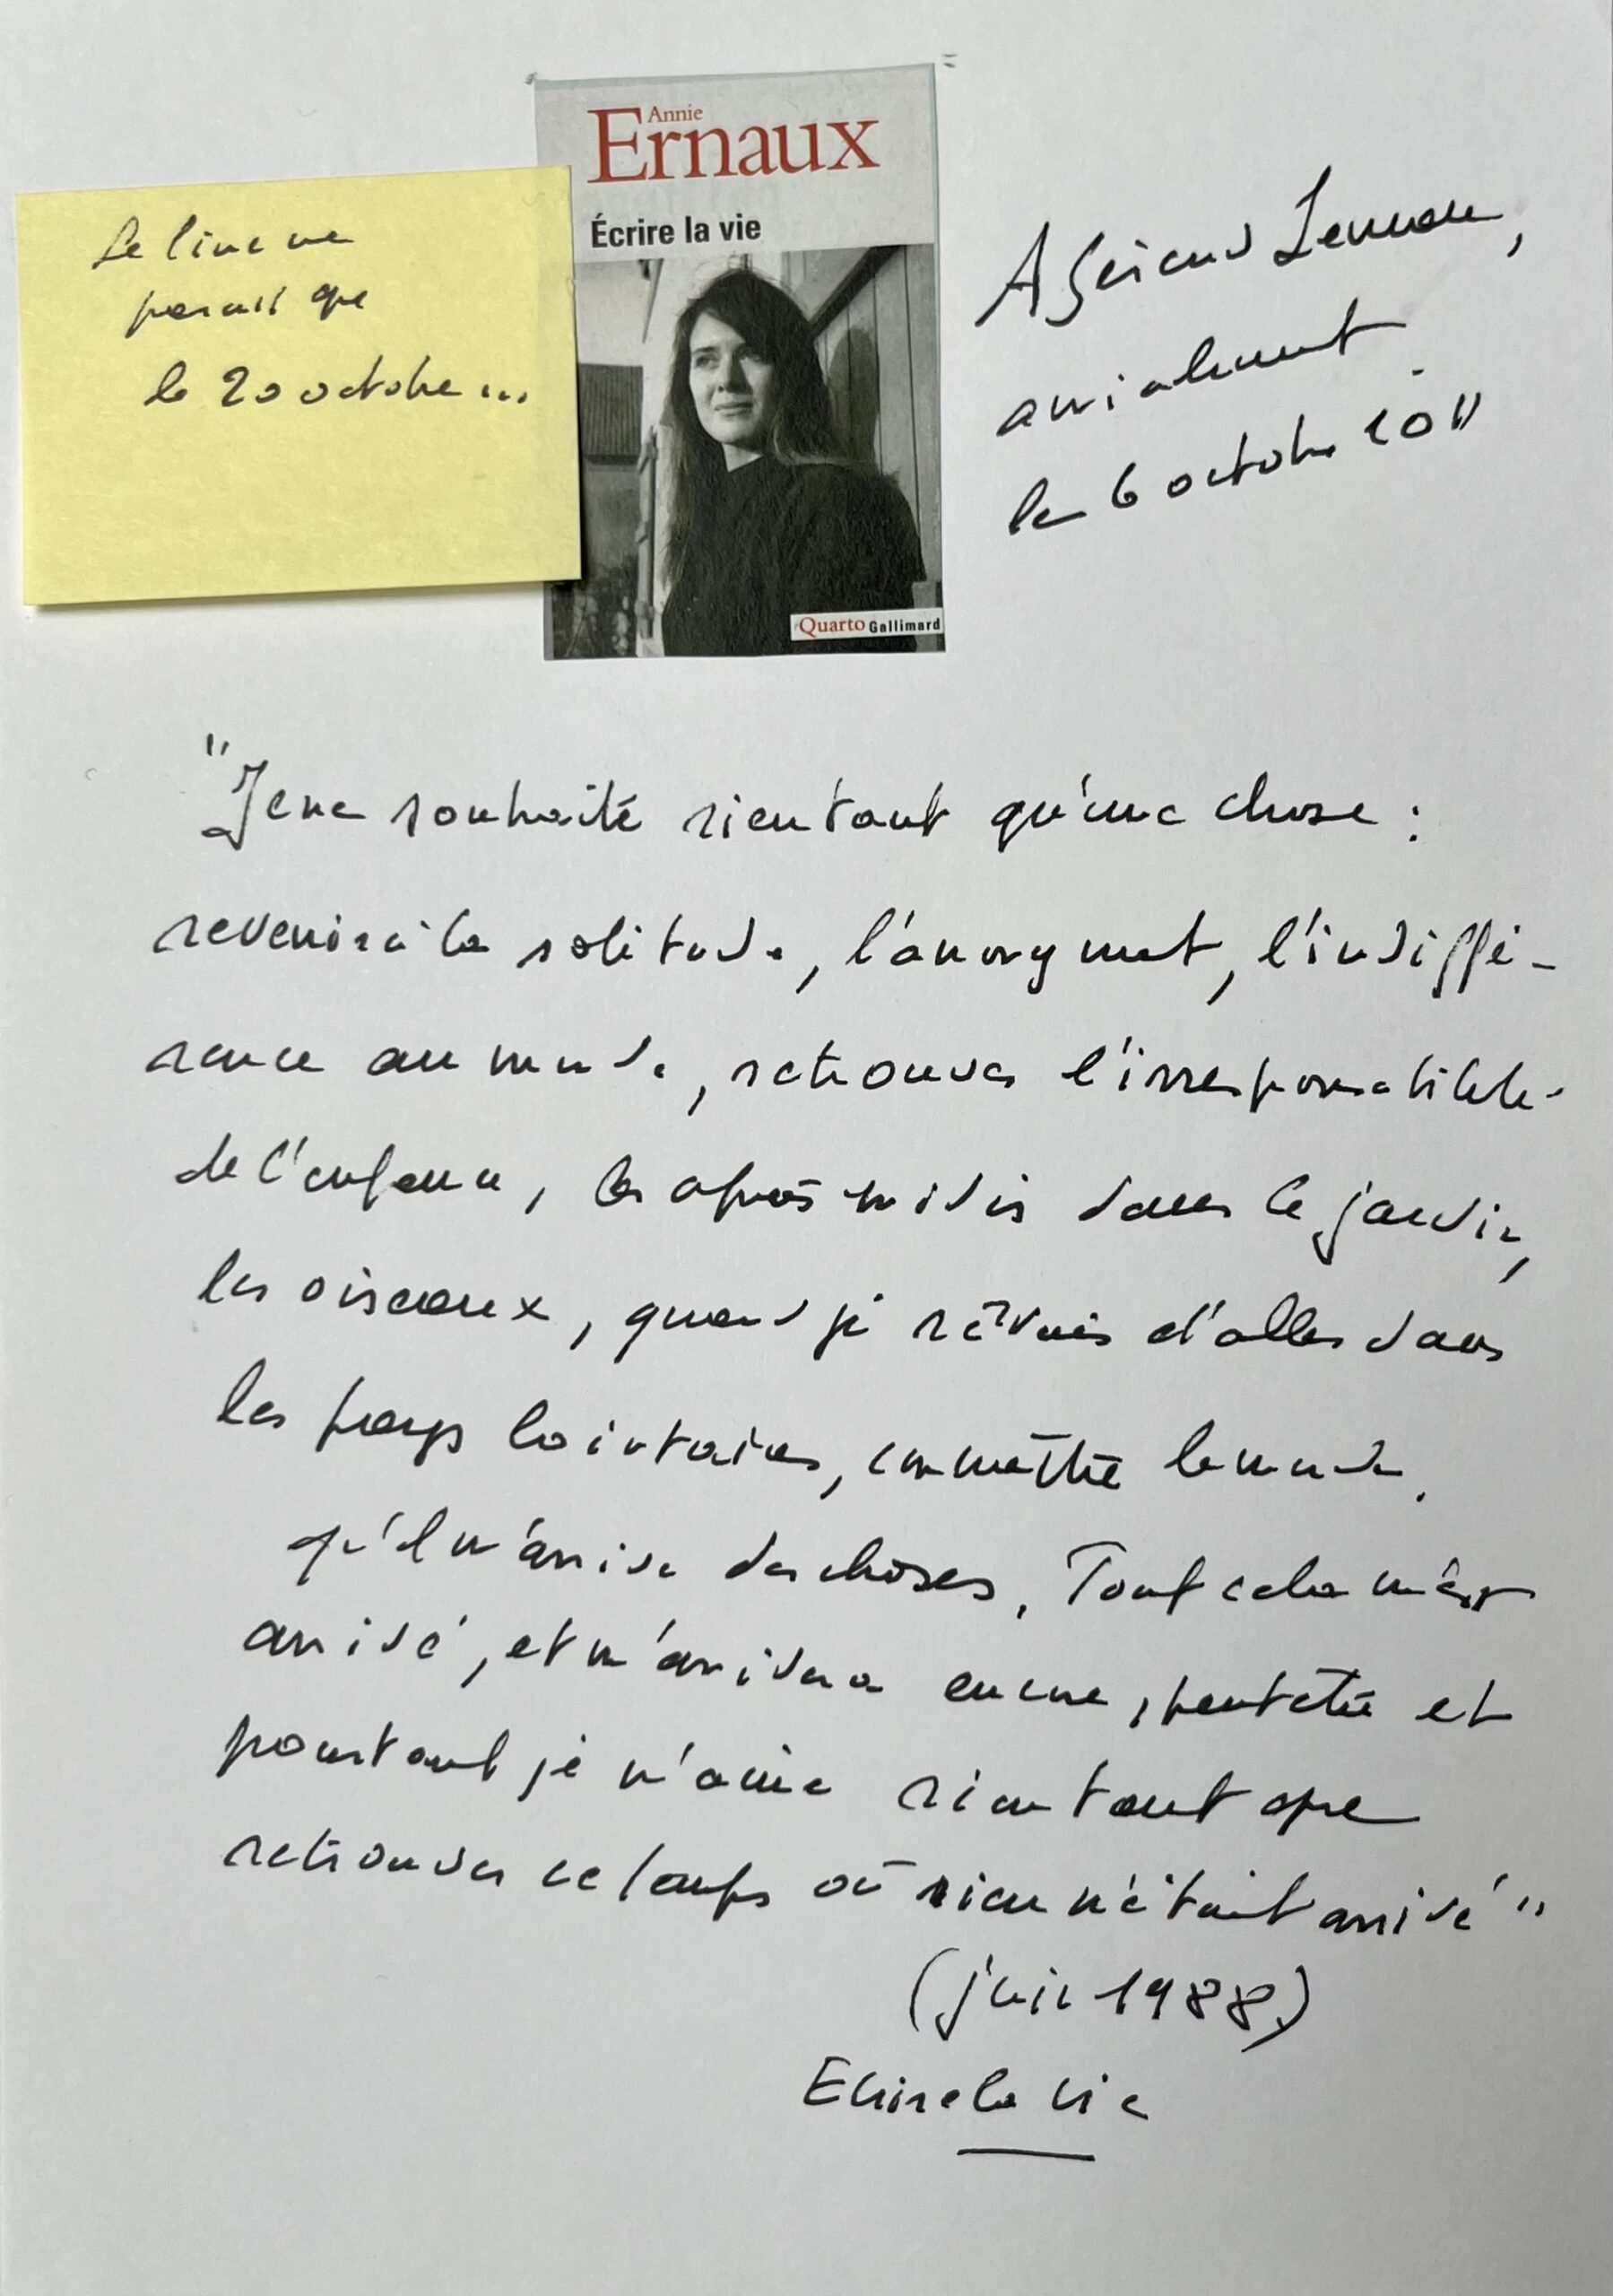 Annie
Ernaux
Écrire la vie
Quarto Gallimard
Le livre ne
paraît que
le 20 octobre...
A Gérard
amicalement
le 6 octobre 2011
"Je ne souhaite rien tant qu'une chose :
revenir à la solitude, l'anonymat, l'indiffé-
rence au monde, retrouver l'irresponsabilité
de l'enfance, les après midis dans le jardin,
les oiseaux, quand je rêvais d'aller dans
les pays lointains, connaître le monde.
qu'il m'arrive des choses. Tout cela m'est
arrivé, et m'arrivera encore, peut être et
pourtant je n'aime rien tant que
retrouver ce temps où rien n'était arrivé"
(juin 1988)
Ecrire la vie